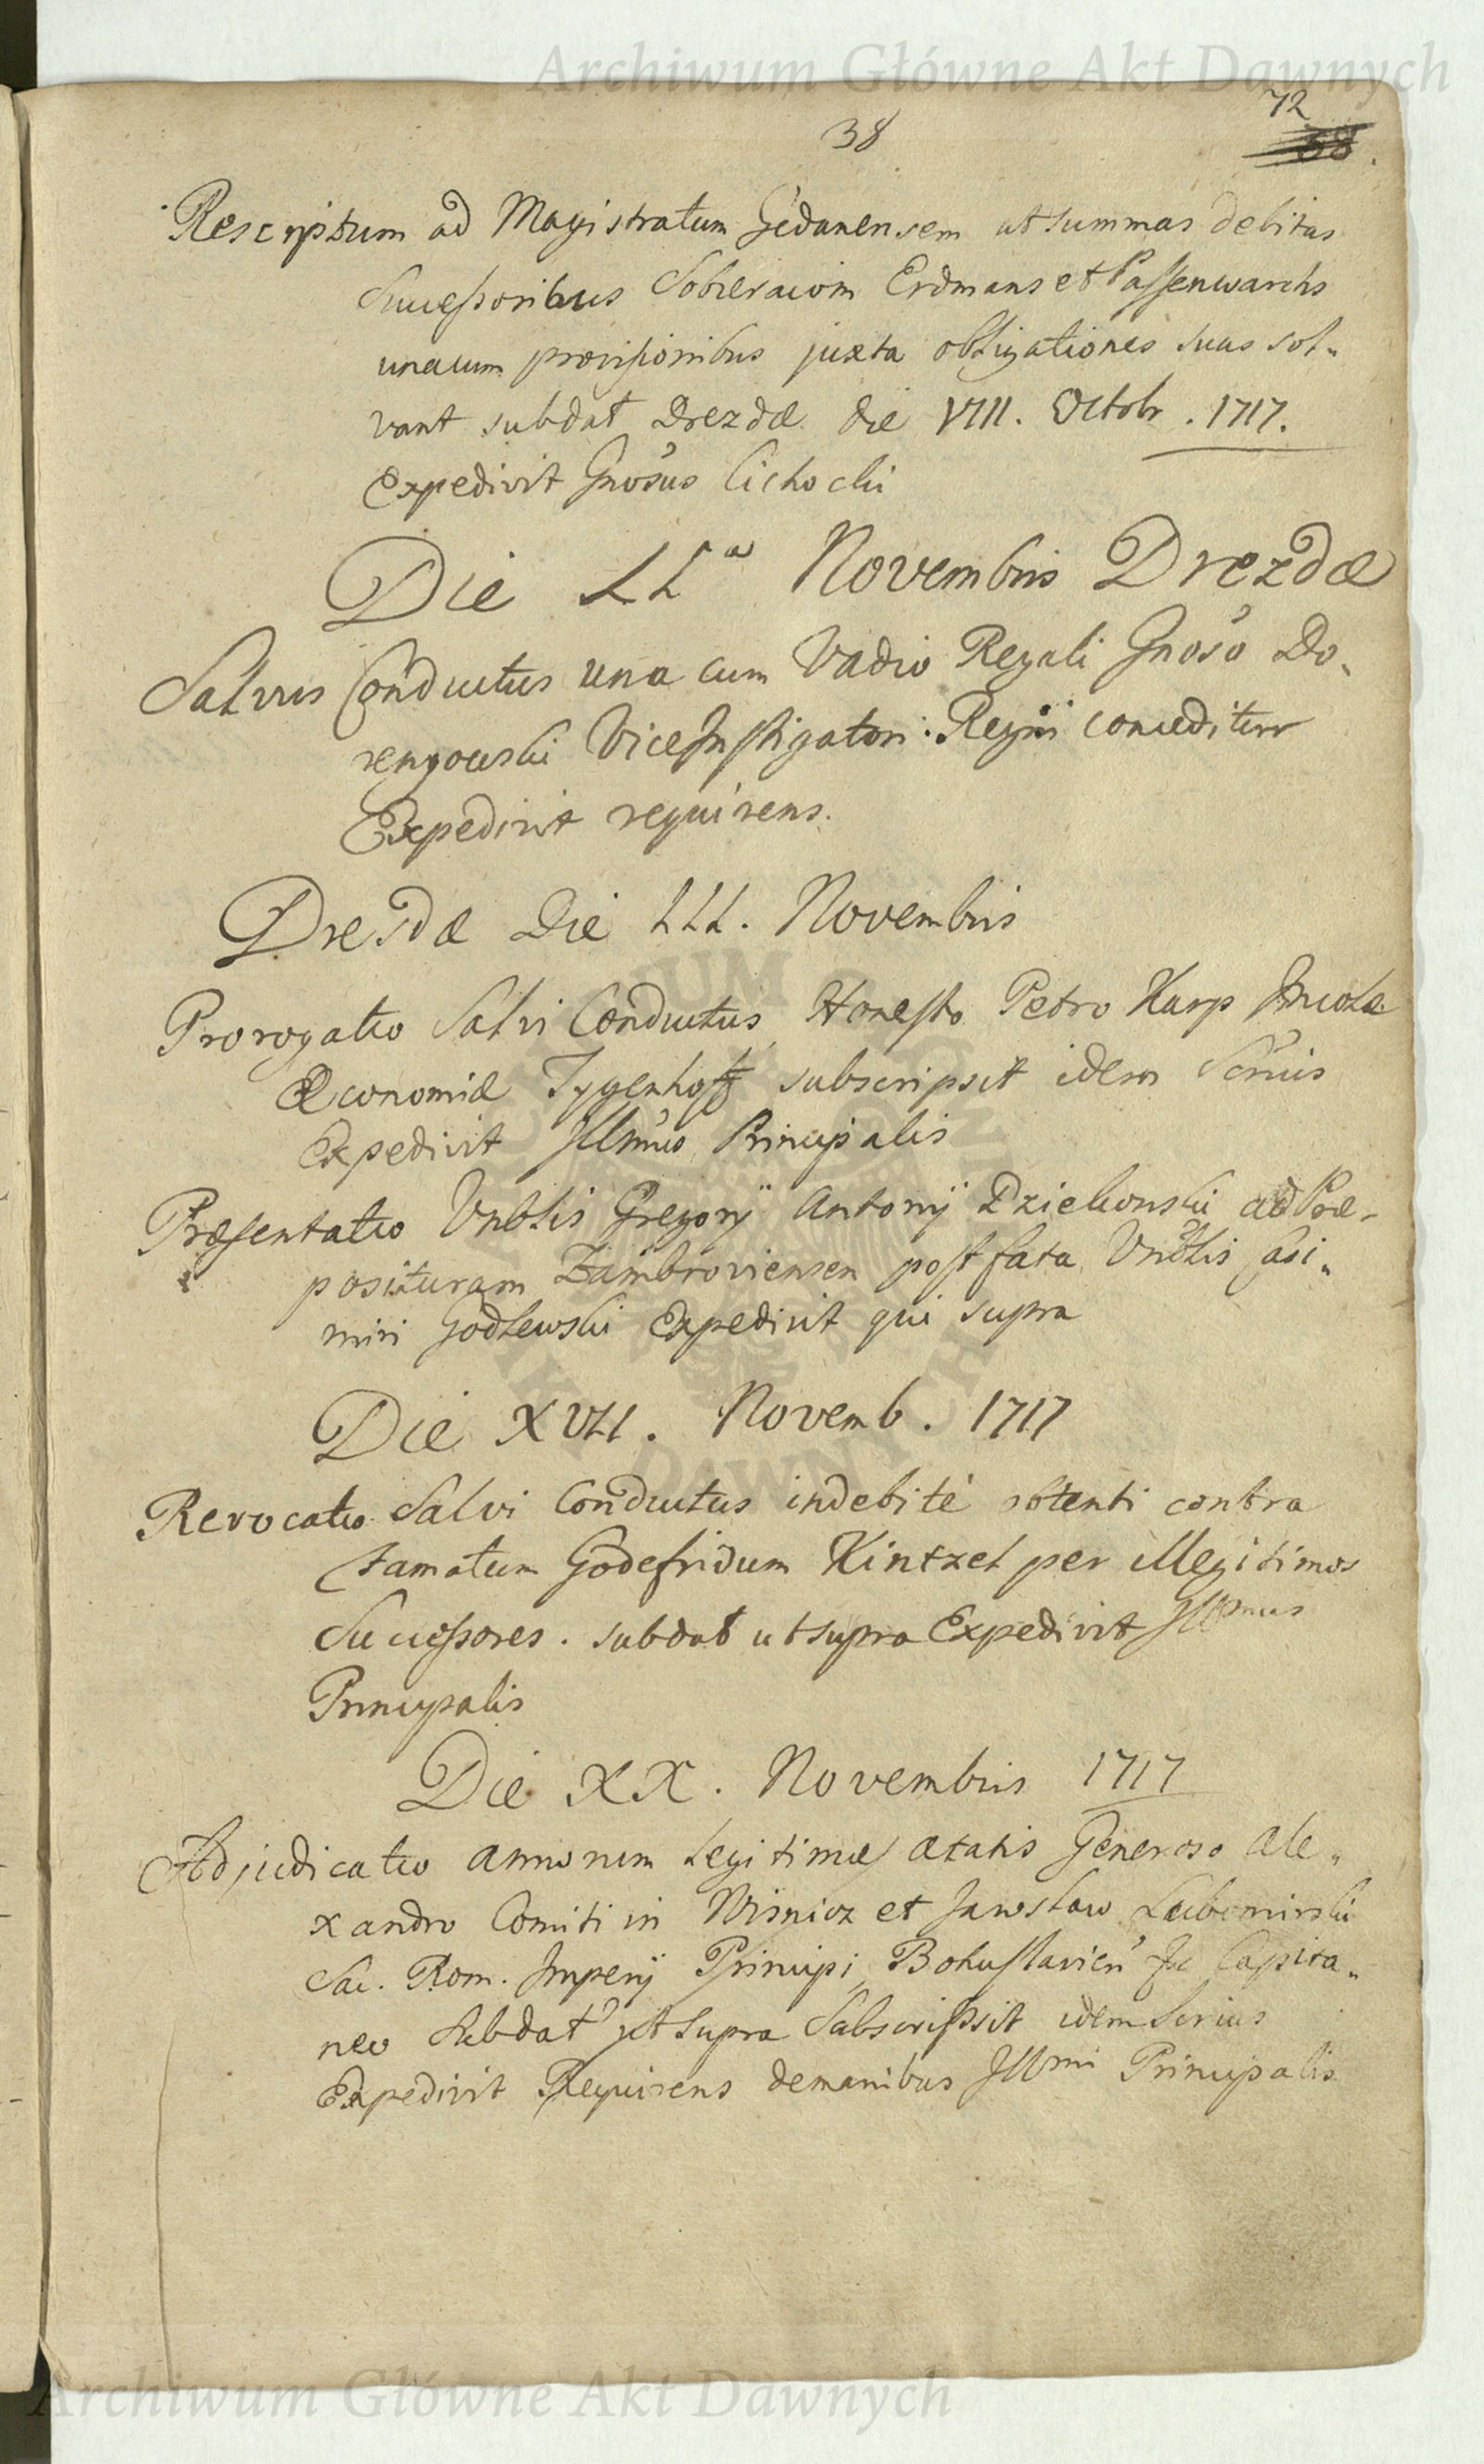 Archiwum Główne Akt Dawnych
72
38 38.
Rescriptum ad Magistratum Gedanensem ut summas debitas
Successoribus Erdmans et Passenwarchs
unacum provisionibus juxta obligationes suas sol-
vant subdat Drezdæ die VIII. Octobr. 1717.
Expedivit Gnosus Cichocki
Die IIa Novembris Drezdæ
Salvus Conductus una cum Vadio Regali Gnoso Do-
rengowski ViceInstigatori Regni conceditur
Expedivit requirens.
Dresdæ Die III. Novembris
Prorogatio Salvi Conductus Honesto Petro Karp Incolæ
Œconomiæ Tygenhoff subscripsit idem Srius
Expedivit Illmus Principalis
Præsentatio Vnblis Gregorij Antonij Dziekonski ad Præ-
posituram Zambroviensem post fata Vnblis Casi-
miri Godlewski Expedivit qui supra
Die XVII. Novemb. 1717
Revocatio Salvi Conductus indebitè obtenti contra
famatum Godefridum Kintzel per illegitimos
Successores. subdat ut supra Expedivit Illmus
Principalis
Die XX. Novembris 1717
Adjudicatio annorum legitimæ ætatis Generoso Ale-
xandro Comiti in Wisnicz et Jaroslaw Lubomirski
Sac. Rom. Imperij Principi Bohuslavien Capita-
neo Subdat ut supra Subscripsit idem Serius
Expedivit Requirens de manibus Illmi Principalis
Archiwum Główne Akt Dawnych